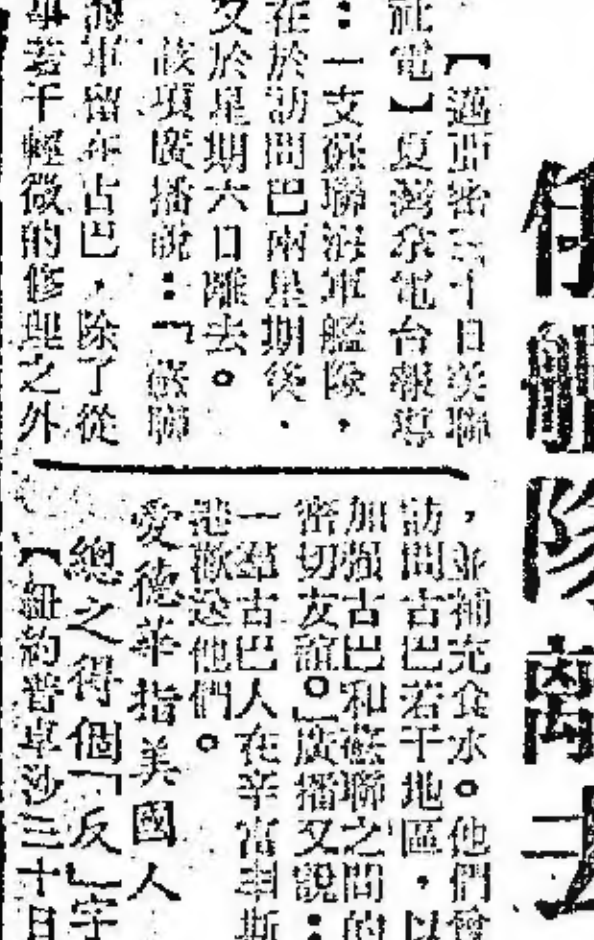 俄艦隊離去
【邁亞密三十日美聯
社電】夏灣拿電台報導
：一支蘇聯海軍艦隊，
在於訪問巴兩星期後，
又於星期六日離去。
該項廣播說：「蘇聯
海軍留在古巴，除了從
事若干輕微的修理之外
，並補充食水。他們曾
訪問古巴若干地區，以
加强古巴和蘇聯之間的
密切友誼。」廣播又說：
一羣古巴人在辛富斯
港歡送他們。
愛德華指美國人
總之得個「反」字
【紐約普卓沙三十日